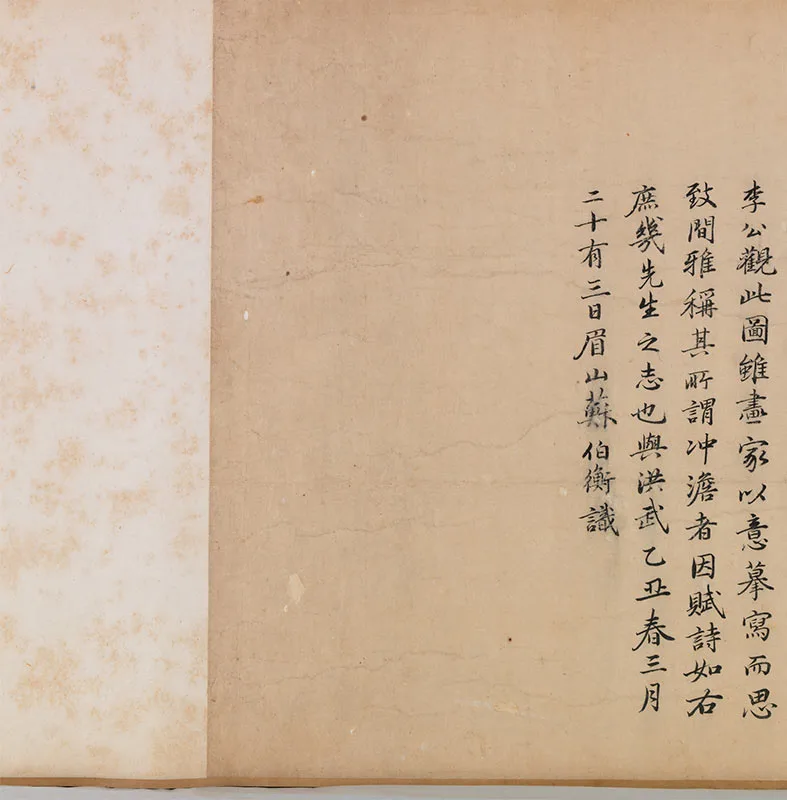 李公觀此圖雖畫家以意摹寫而思
致閒雅稱其所謂冲澹者因賦詩如右
庶幾先生之志也與洪武乙丑春三月
二十有三日眉山蘇伯衡識